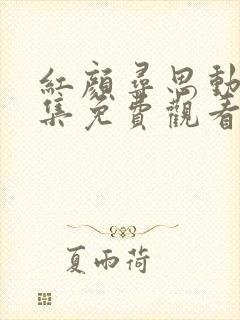 紅顏尋思動
集免費觀看
夏雨荷